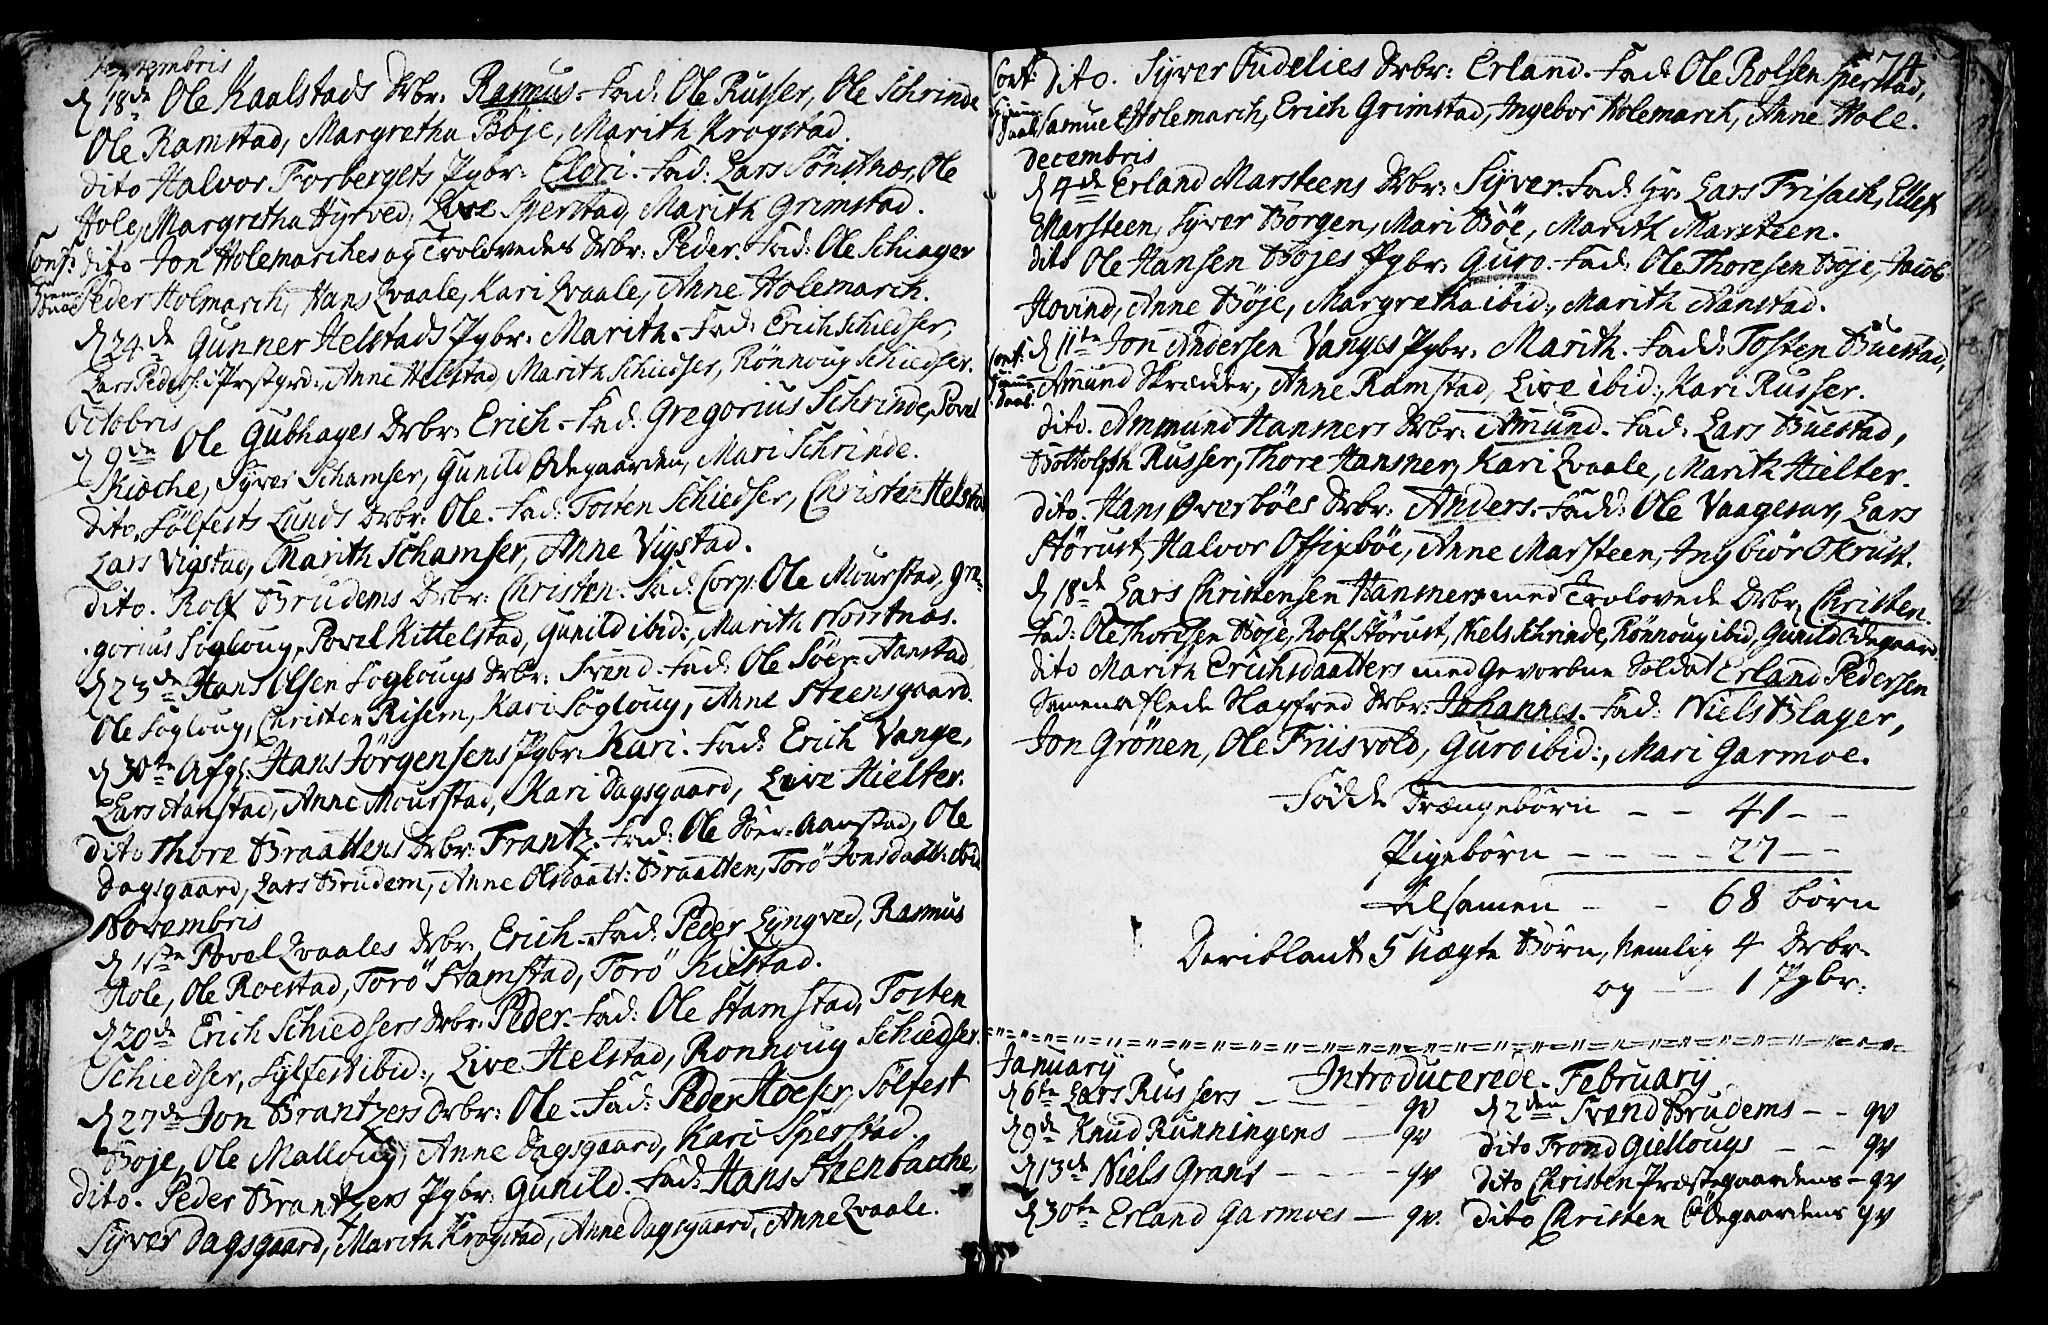 Septembris
d 18de Ole Kaalstads Drbr: Rasmus. Fad: Ole Russer, Ole Schrinde
Ole Ramstad, Margretha Böje, Marith Krogstad.
dito Halvor Forbergets Pgbr: Eldri. Fad: Lars Sönstnæs, Ole
Hole, Margretha Hyrved, Live Sperstad, Marith Grimstad.
Conf: dito Jon Holemarches og Trolovedes Drbr: Peder. Fad: Ole Schiager
Peder Holmarch, Hans Qvaale, Kari Qvaale, Anne Holemarch.
d 24de Gunner Helstads Pgbr: Marith. Fad: Erich Schiedser,
Lars Peders: i Præstgrd: Anne Helstad, Marith Schiedser, Rönnoug Schiedser.
Octobris
d 9de Ole Gubhages Drbr: Erich. Fad: Gregorius Schrinde, Povel
Kioche, Syver Schamser, Gunild Ødegaarden, Mari Schrinde.
Dito, Sölfests Lunds Drbr: Ole. Fad: Tosten Schiedser, Christen Helstad,
Lars Vigstad, Marith Schamser, Anne Vigstad.
dito. Rolf Brudems Drbr: Christen. Fad: Corp: Ole Mourstad, Gre-
gorius Sögloug, Povel Kittelstad, Gunild ibid:, Marith Norstnæs.
d 23de Hans Olsen Söglougs Drbr: Svend. Fad: Ole Söer-Aanstad
Ole Söglouy, Christen Risem, Kari Söglouy, Anne Steensgaard.
d 30te Afg: Hans Jörgensens Pgbr: Kari. Fad: Erich Vange,
Lars Aanstad, Anne Mourstad, Kari Dagsgaard, Live Hielter.
dito Thore Braattens Drbr: Frantz. Fad: Ole Söer-Aanstad, Ole
Dagsgaard, Lars Brudem, Anne Olsdaatt: Braatten, Torö Jonsdaatt: ibid
Novembris
d 11te Povel Qvaales Drbr: Erich. Fad: Peder Lyngved, Rasmus
Hole, Ole Roestad, Torö Stamstad, Torö Kiestad.
d 20de Erich Schiedsers Drbr: Peder. Fad: Ole Stamstad, Tosten
Schiedser, Sylfest ibid:, Live Helstad, Rönnoug Schiedser.
d 27de Jon Brantzers Drbr: Ole. Fad: Peder Hoeser, Sölfest
Böje, Ole Malloug, Anne Dagsgaard, Kari Sperstad.
dito. Peder Brantzers Pgbr: Gunild. Fad: Hans Steenbache,
Syver Dagsgaard, Marith Krogstad, Anne Dagsgaard, Anne Qvaale.
74
Conf: dito. Syver Pudelies Drbr: Erland. Fad: Ole Rolsen Sperstad,
Samuel Holemarch, Erich Grimstad, Ingebor Holemarch, Anne Hole.
Decembris
d 4de Erland Marsteens Drbr: Syver. Fad: Hr: Lars Frisach, Ellef
Marsteen, Syver Borgen, Mari Böe, Marith Marsteen.
dito Ole Hansen Böjes Pgbr: Guro. Fad: Ole Thoresen Böje, Jacob
Hovind, Anne Böje, Margretha ibid:, Marith Aanstad.
Conf: d 11te Jon Andersen Vanges Pgbr: Marith. Fadd: Tosten Buestad,
Amund Skrædder, Anne Ramstad, Live ibid:, Kari Russer.
dito. Ammund Hansners Drbr: Amund. Fad: Lars Buestad,
Bottolph Russer, Thore Hansner, Kari Qvaale, Marith Hielter.
dito. Hans Øverböes Drbr: Anders. Fadd: Ole Vaagesar, Lars
Störust, Halvor Offigsböe, Anne Marsteen, Ingbiör Okrust.
d 18de Lars Christensen Hansners med Trolovede Drbr: Christen.
Fad: Ole Thoresen Böje, Rolf Störust, Niels Schrinde, Rönnoug ibid, Gunild Ødegaard.
dito Marith Erichsdaatters med Gevorbne Soldat Erland Pedersen
Semen aflede Slagfred Drbr: Johannes. Fad: Niels Blager,
Jon Grönen, Ole Friisvold, Guro ibid:, Mari Garmoe.
Födde Drængebörn - - 41 - -
Pigebörn - - - - - 27 - -
tilsamen - - 68 börn
Deriblant 5 uægte Börn, nemlig 4 Drbr:
og - - 1 Pgbr:
Introducerede.
January
d 6te Lars Russers - - - qv
d 9de Knud Runningens - qv
d 13de Niels Grans - - - - qv
d 30te Erland Garmoes - qv.
February
d 2den Svend Brudems - - qv
dito Trond Giellougs - - - qv
dito Christen Præstegaardens - qv
dito Christen Ödegaardens qv